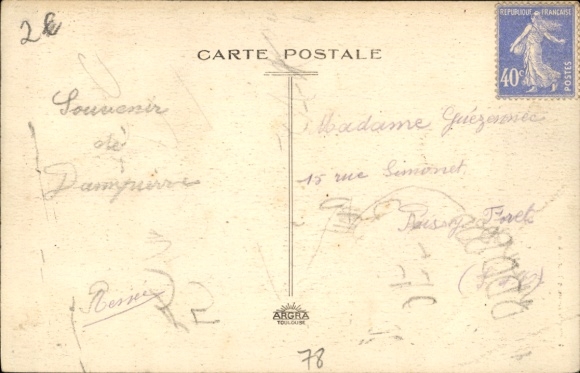 2€
CARTE POSTALE
REPUBLIQUE FRANÇAISE
40c
POSTES
Souvenir
de
Dampierre
Madame Guézennec
15 rue Simonet
ARGRA
TOULOUSE
78